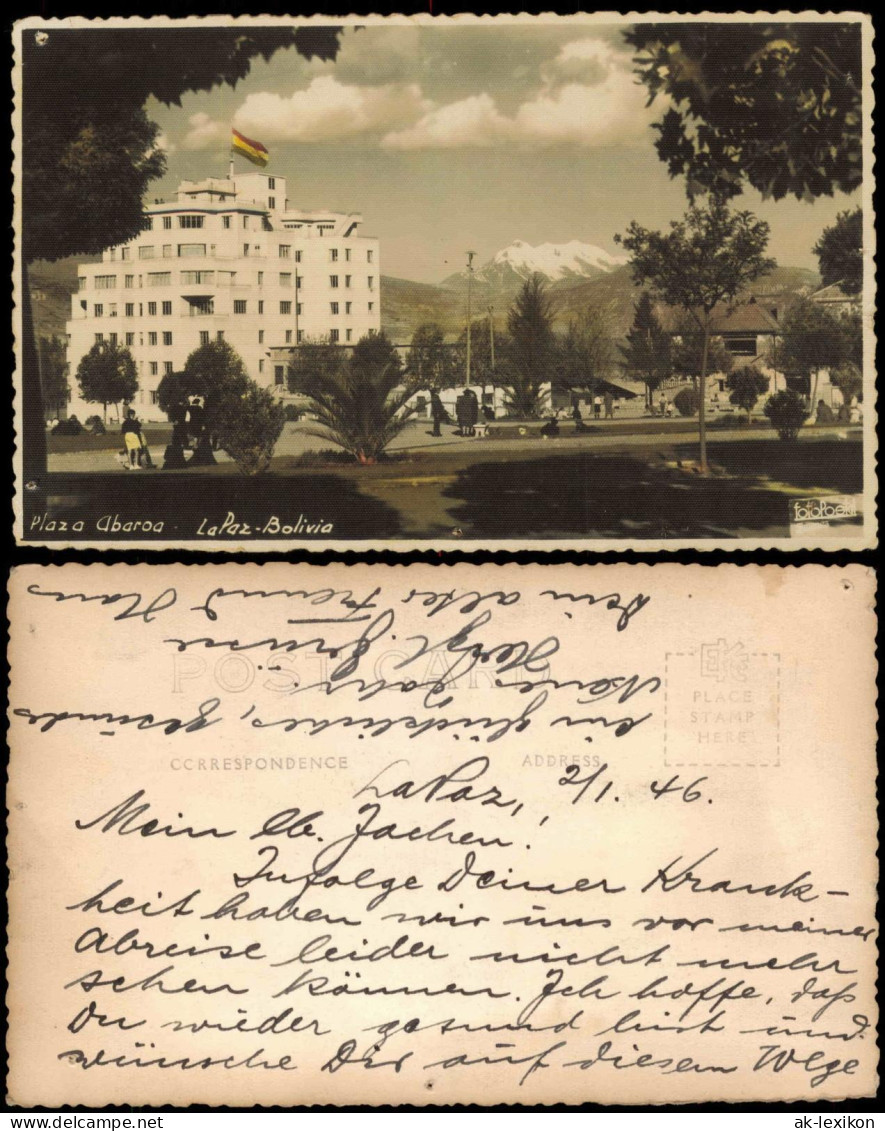 Plaza Abaroa - La Paz - Bolivia
foto Poetti
POST CARD
CORRESPONDENCE
ADDRESS
EKC
PLACE
STAMP
HERE
La Paz, 2/1. 46.
Mein lb. Jochen!
Infolge Deiner Krank-
heit haben wir uns vor meiner
Abreise leider nicht mehr
sehen können. Ich hoffe, daß
Du wieder gesund bist und
wünsche Dir auf diesem Wege
ein glückliches, gesundes
Neues Jahr.
Herzl. Grüsse
Dein alter Freund Hans
ak-lexikon
www.delcampe.net